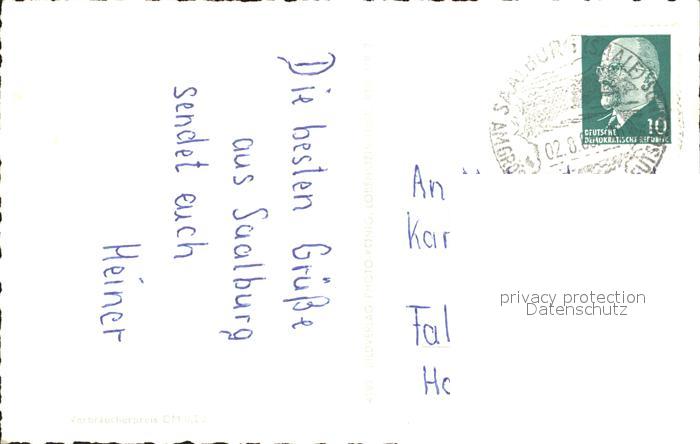 Die besten Grüße
aus Saalburg
sendet euch
Heiner
An
Kar
Fal
Ho
privacy protection
Datenschutz
SAALBURG (SAALE)
02.8.6
10
DEUTSCHE
DEMOKRATISCHE REPUBLIK
Verbraucherpreis DM 0,20